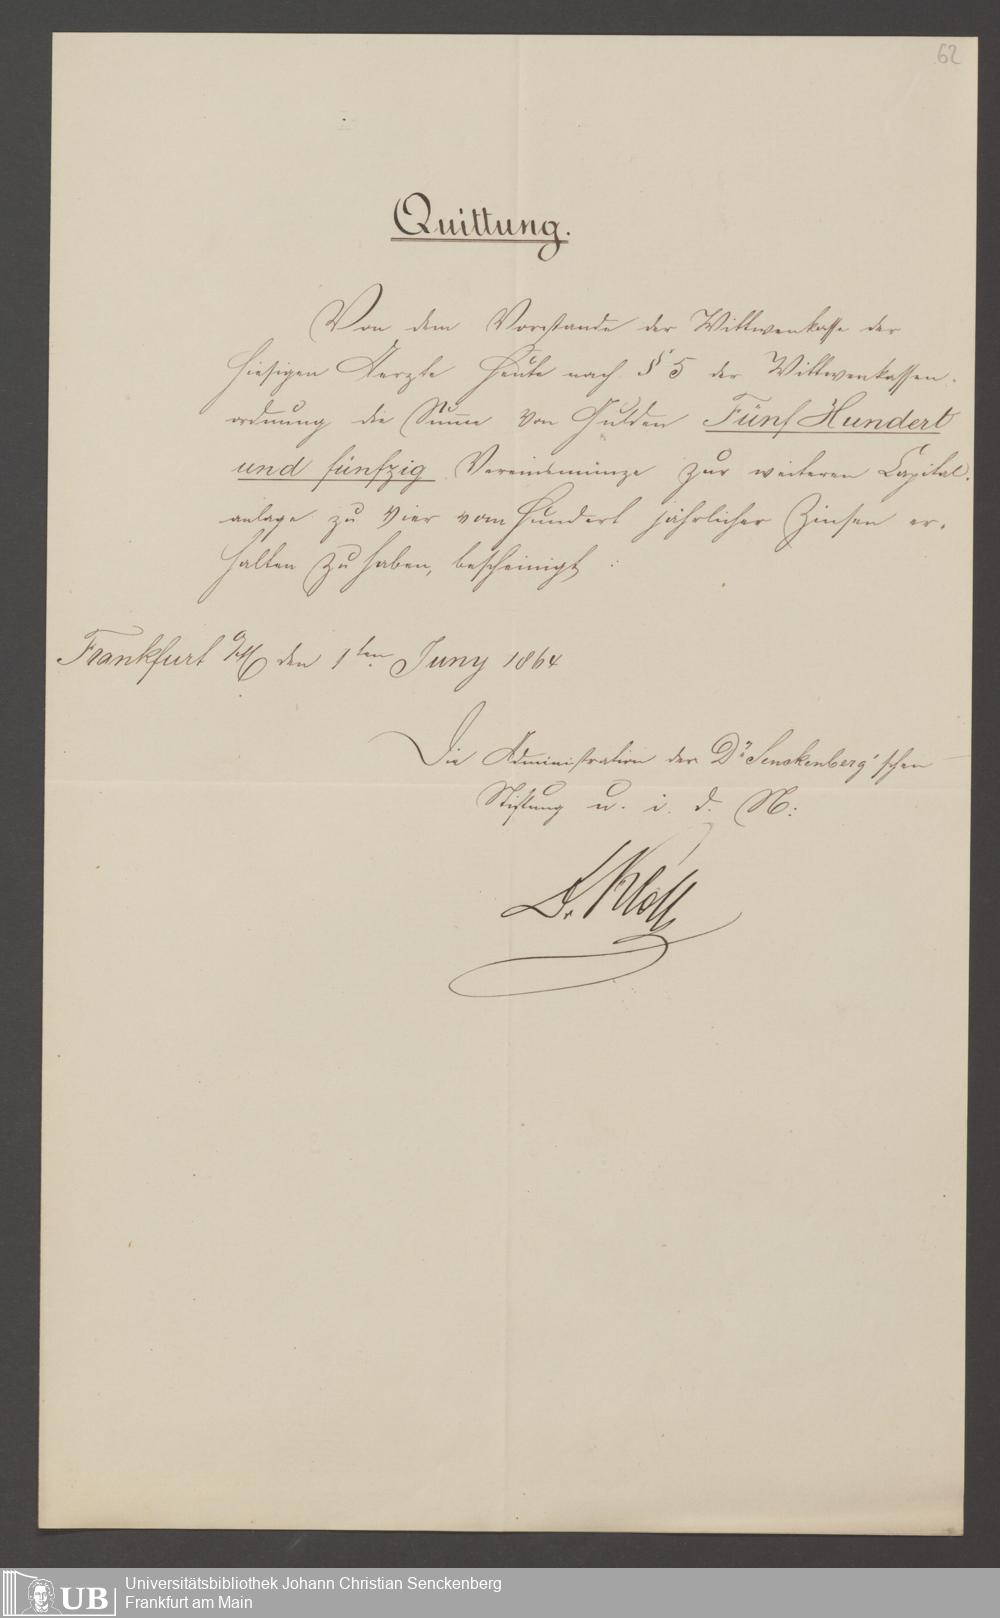 62
Quittung.
Von dem Vorstande der Wittwenkasse der
hiesigen Aerzte heute nach § 5 der Wittwenkassen-
ordnung die Summe von Gulden Fünf Hundert
und fünfzig Vereinsmünze zur weiteren Capital-
anlage zu Vier vom Hundert jährlicher Zinsen er-
halten zu haben, bescheinigt:
Frankfurt a/M den 1ten Juny 1864
Die Administration der Dr Senckenberg'schen
Stiftung u. i. d. N:
Dr. Kloß
UB
Universitätsbibliothek Johann Christian Senckenberg
Frankfurt am Main